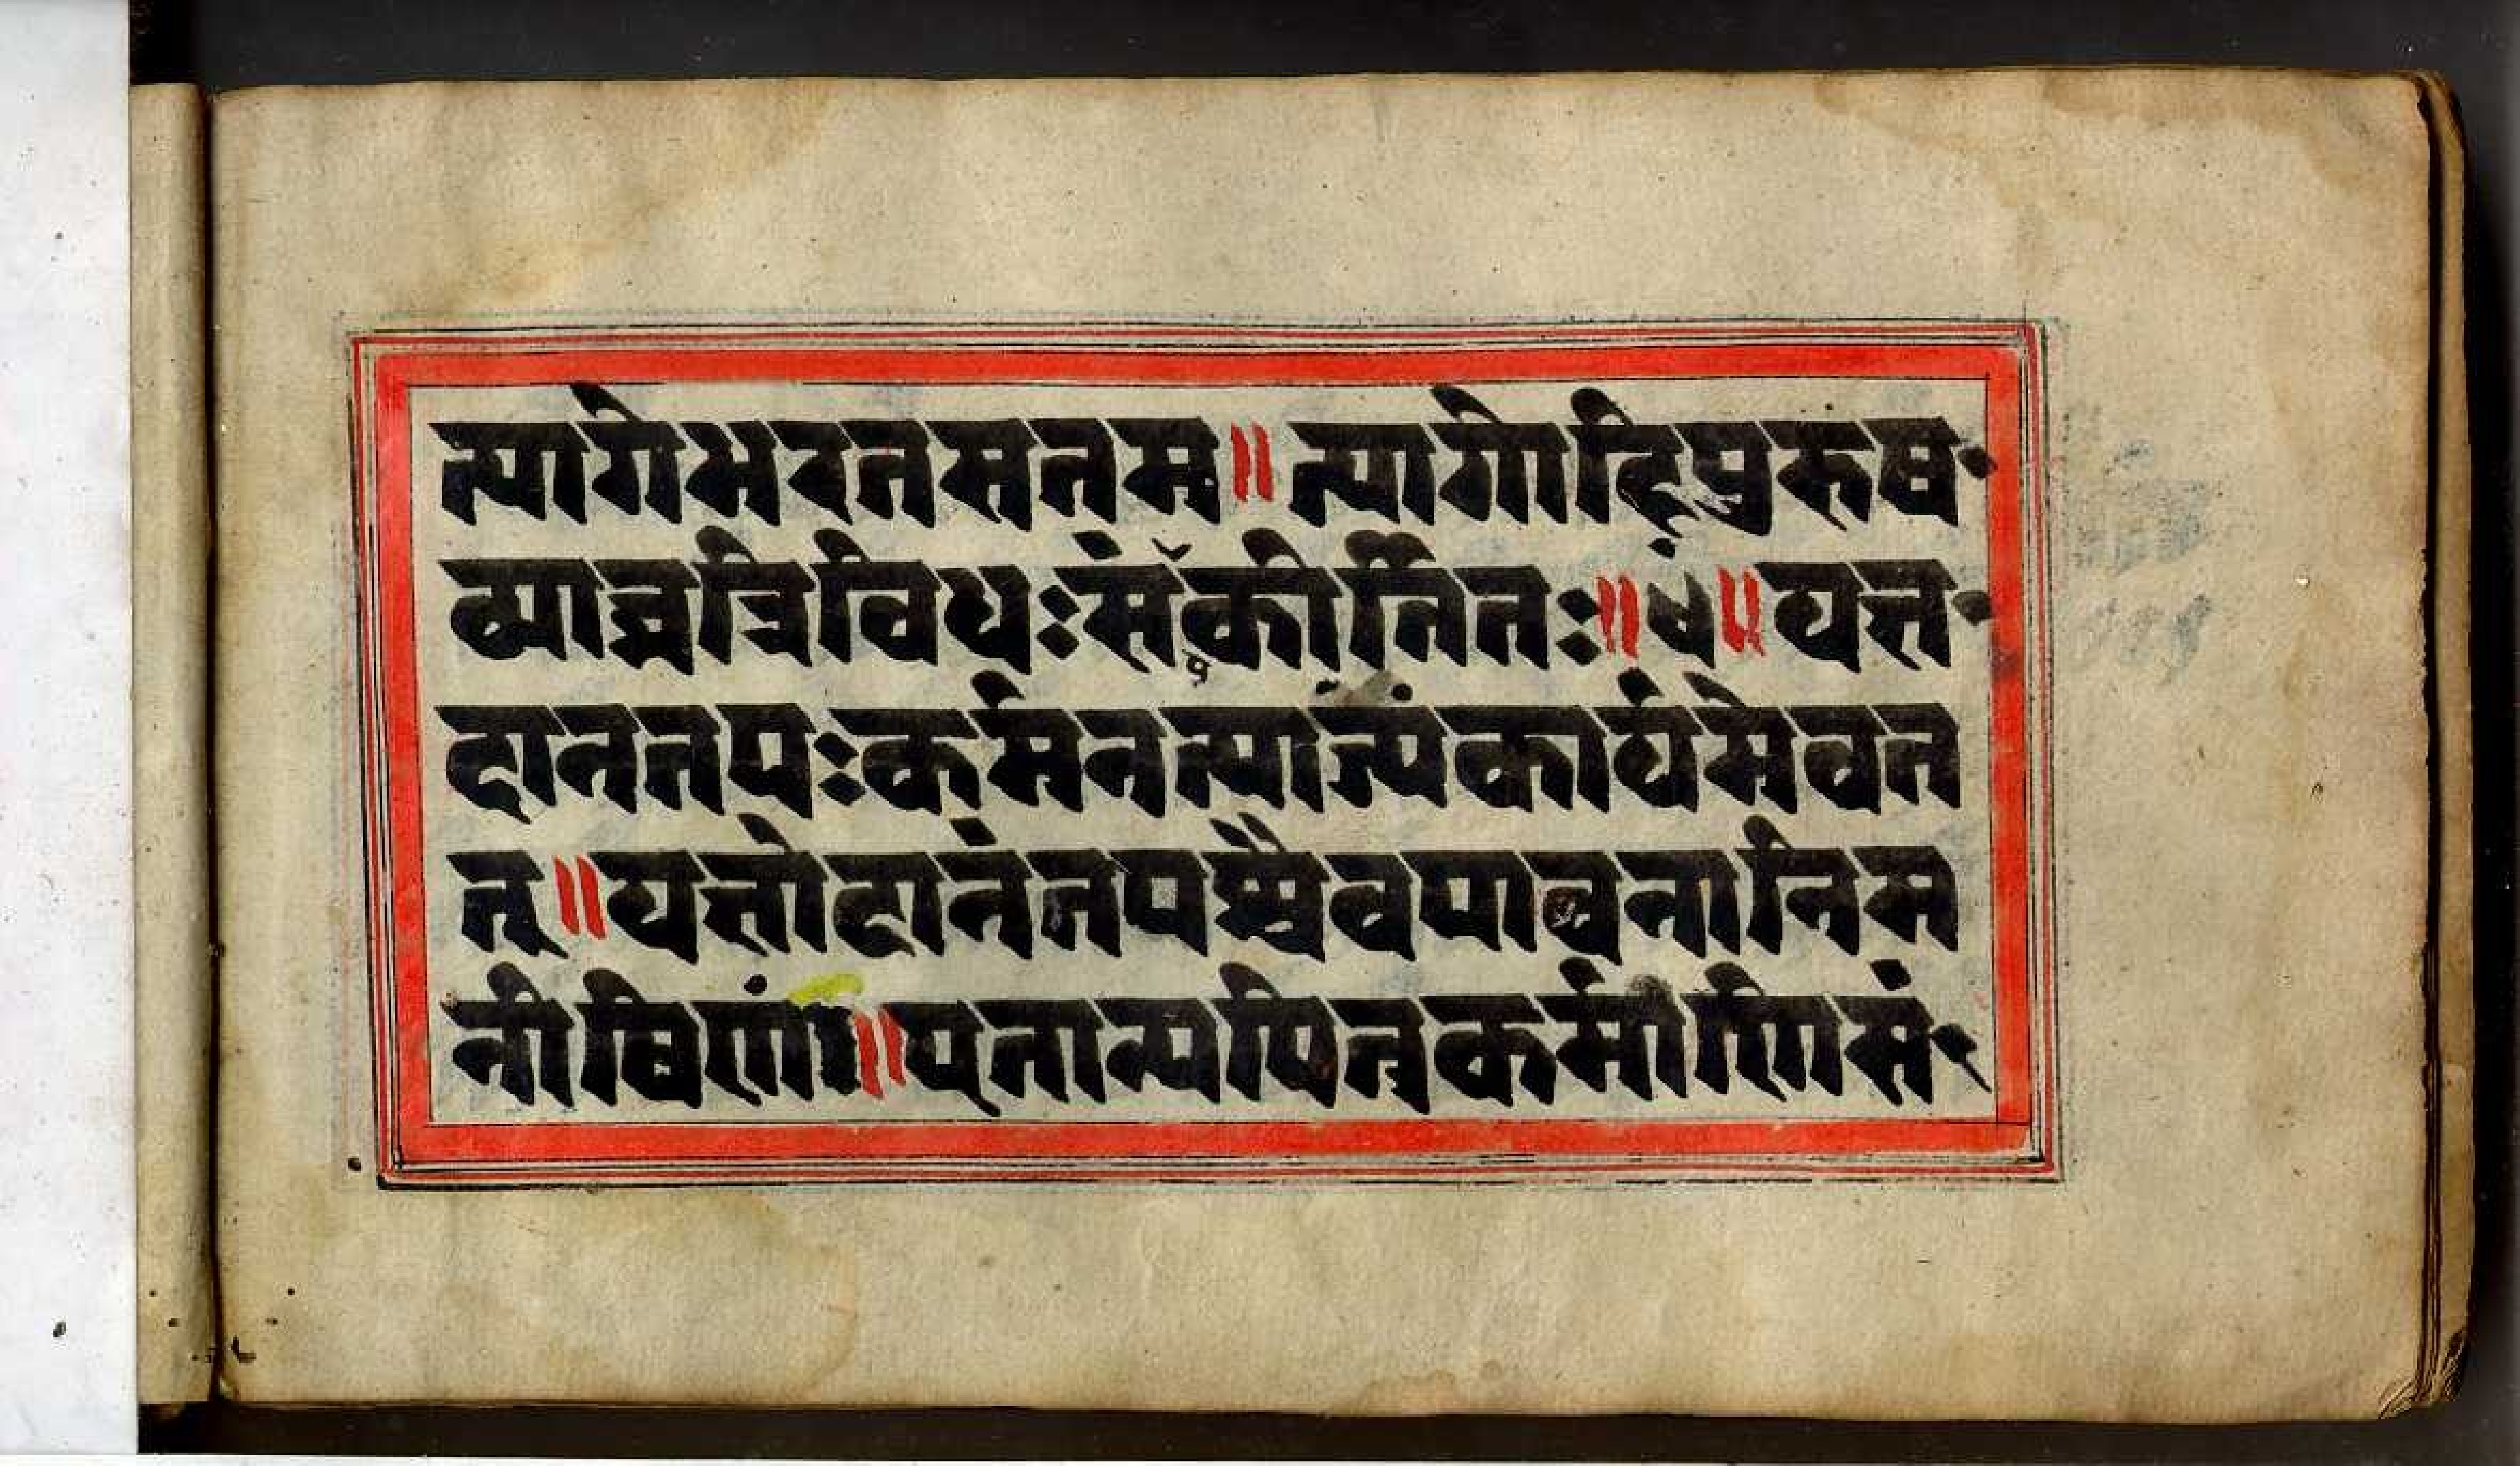 त्यागेभरतसत्तम॥त्यागोहिपुरुष
व्याघ्रत्रिविधःसंकीर्तितः॥४॥यज्ञ
दानतपःकर्मनत्याज्यंकार्यमेवत
त्॥यज्ञोदानंतपश्चैवपावनानिम
नीषिणां॥एतान्यपितुकर्माणिसं